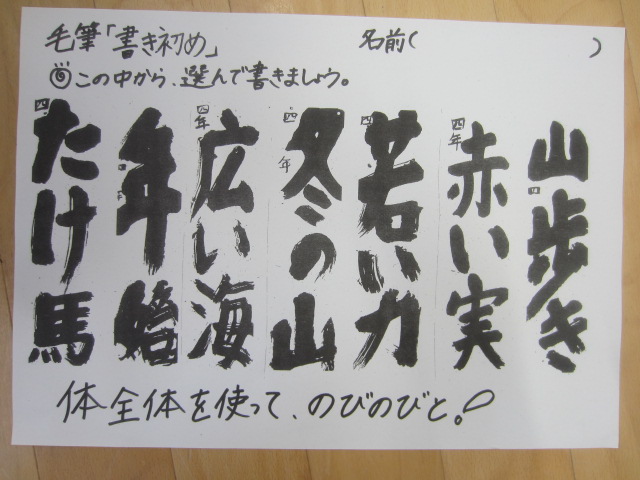 毛筆「書き初め」
名前(　　　)
◎この中から、選んで書きましょう。
山歩き
四
赤い実
四年
若い力
四
冬の山
四年
広い海
四年
年始
四
たけ馬
四
体全体を使って、のびのびと。